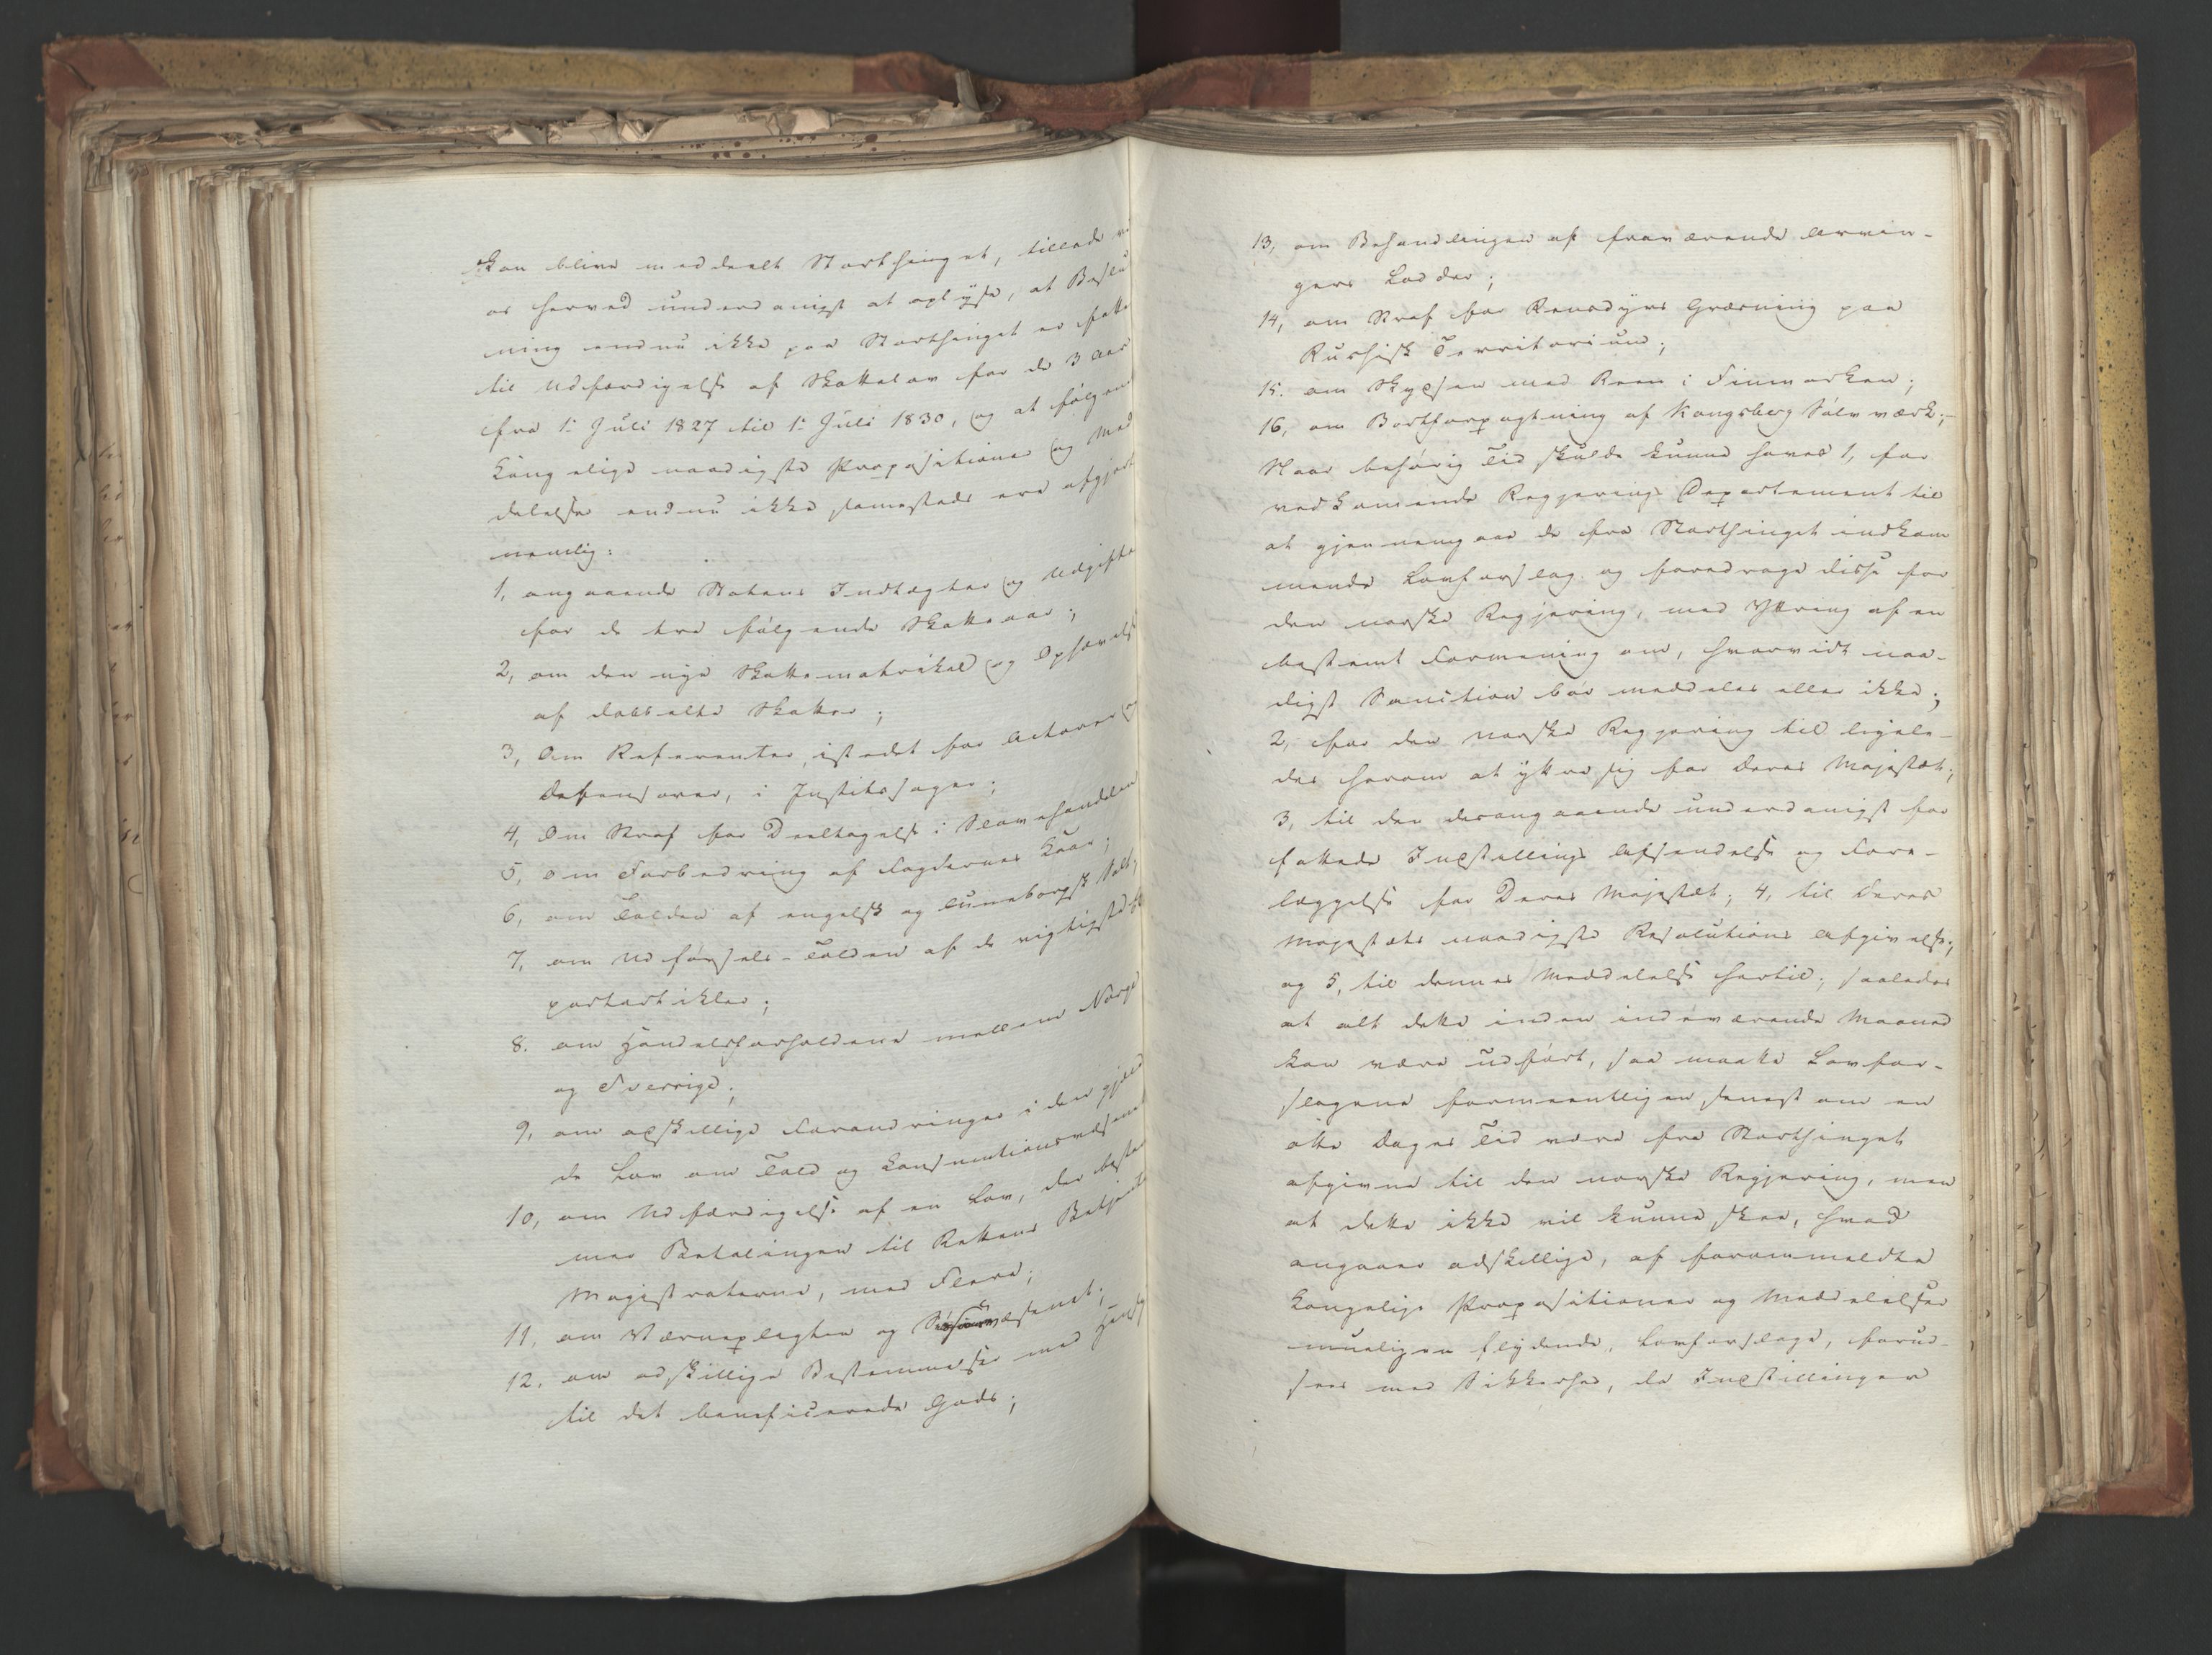 kan blive meddeelt Storthinget, tillade vi
os herved underdanigst at oplyse, at Beslut
ning endnu ikke paa Storthinget er fatte
til Udfærdigelse af Skattelov for de 3 Aar
fra 1. Juli 1827 til 1. Juli 1830, og at følgen
kongelige naadigste Propositioner og Med
delelser endnu ikke sammesteds ere afgjort
nemlig:
1, angaaende Statens Indtægter og Udgifte
for de tre følgende Skatteaar;
2, om den nye Skattematrikel og Ophævelse
af dobbelte Skatter;
3, Om Referenter, istedet for Actorer og
Defensorer, i Justitssager;
4, Om Straf for Deeltagelse i Slavehandelen
5, om Forbedring af Fogdernes Kaar;
6, om Tolden af engelsk og Luneborgsk Salt;
7, om Udførsels-Tolden af de vigtigste
portartikler;
8. om Handelsforholdene mellem Norge
og Sverrige;
9, om adskillige Forandringer i den gjæld
de Lov om Told og Consumtionsvæsenet
10, om Udfærdigelse af en Lov, der bestem
mer Betalingen til Rettens Betjente
Magistraterne, med Flere;
11, om Værnepligten og
12, om adskillige Bestemmelser med Hensy
til det beneficerede Gods;
13, om Behandlingen af fraværende Arvin-
gers Lodder;
14, om Straf for Rensdyrs Græsning paa
Russisk Territorium;
15. om Skydsen med Reen i Finmarken;
16, om Bortforpagtning af Kongsberg Sølvværk;-
Naar behørig Tid skulde kunne haves 1, for
vedkommende Regjerings Departement til
at gjennemgaae de fra Storthinget indkom
mende Lovforslag og foredrage disse for
den norske Regjering, med Yttring af en
bestemt Formening om, hvorvidt naa-
digst Sanction bør meddeles eller ikke;
2, for den norske Regjering til ligele-
des herom at yttre sig for Deres Majestæt;
3, til den desangaaende underdanigst for
fattede Indstillings Afsendelse og Fore-
læggelse for Deres Majestæt; 4, til Deres
Majestæts naadigste Resolutions Afgivelse;
og 5, til dennes Meddelelse hertil; saaledes
at alt dette inden indeværende Maaned
kan være udført, saa maatte Lovfor-
slagene formeentligen senest om en
otte Dages Tid være fra Storthinget
afgivne til den norske Regjering, men
at dette ikke vil kunne skee, hvad
angaaer adskillige, af forommeldte
Kongelige Propositioner og Meddelelser
mueligen flydende, Lovforslage, forud-
sees med Sikkerhed, da Indstillinger